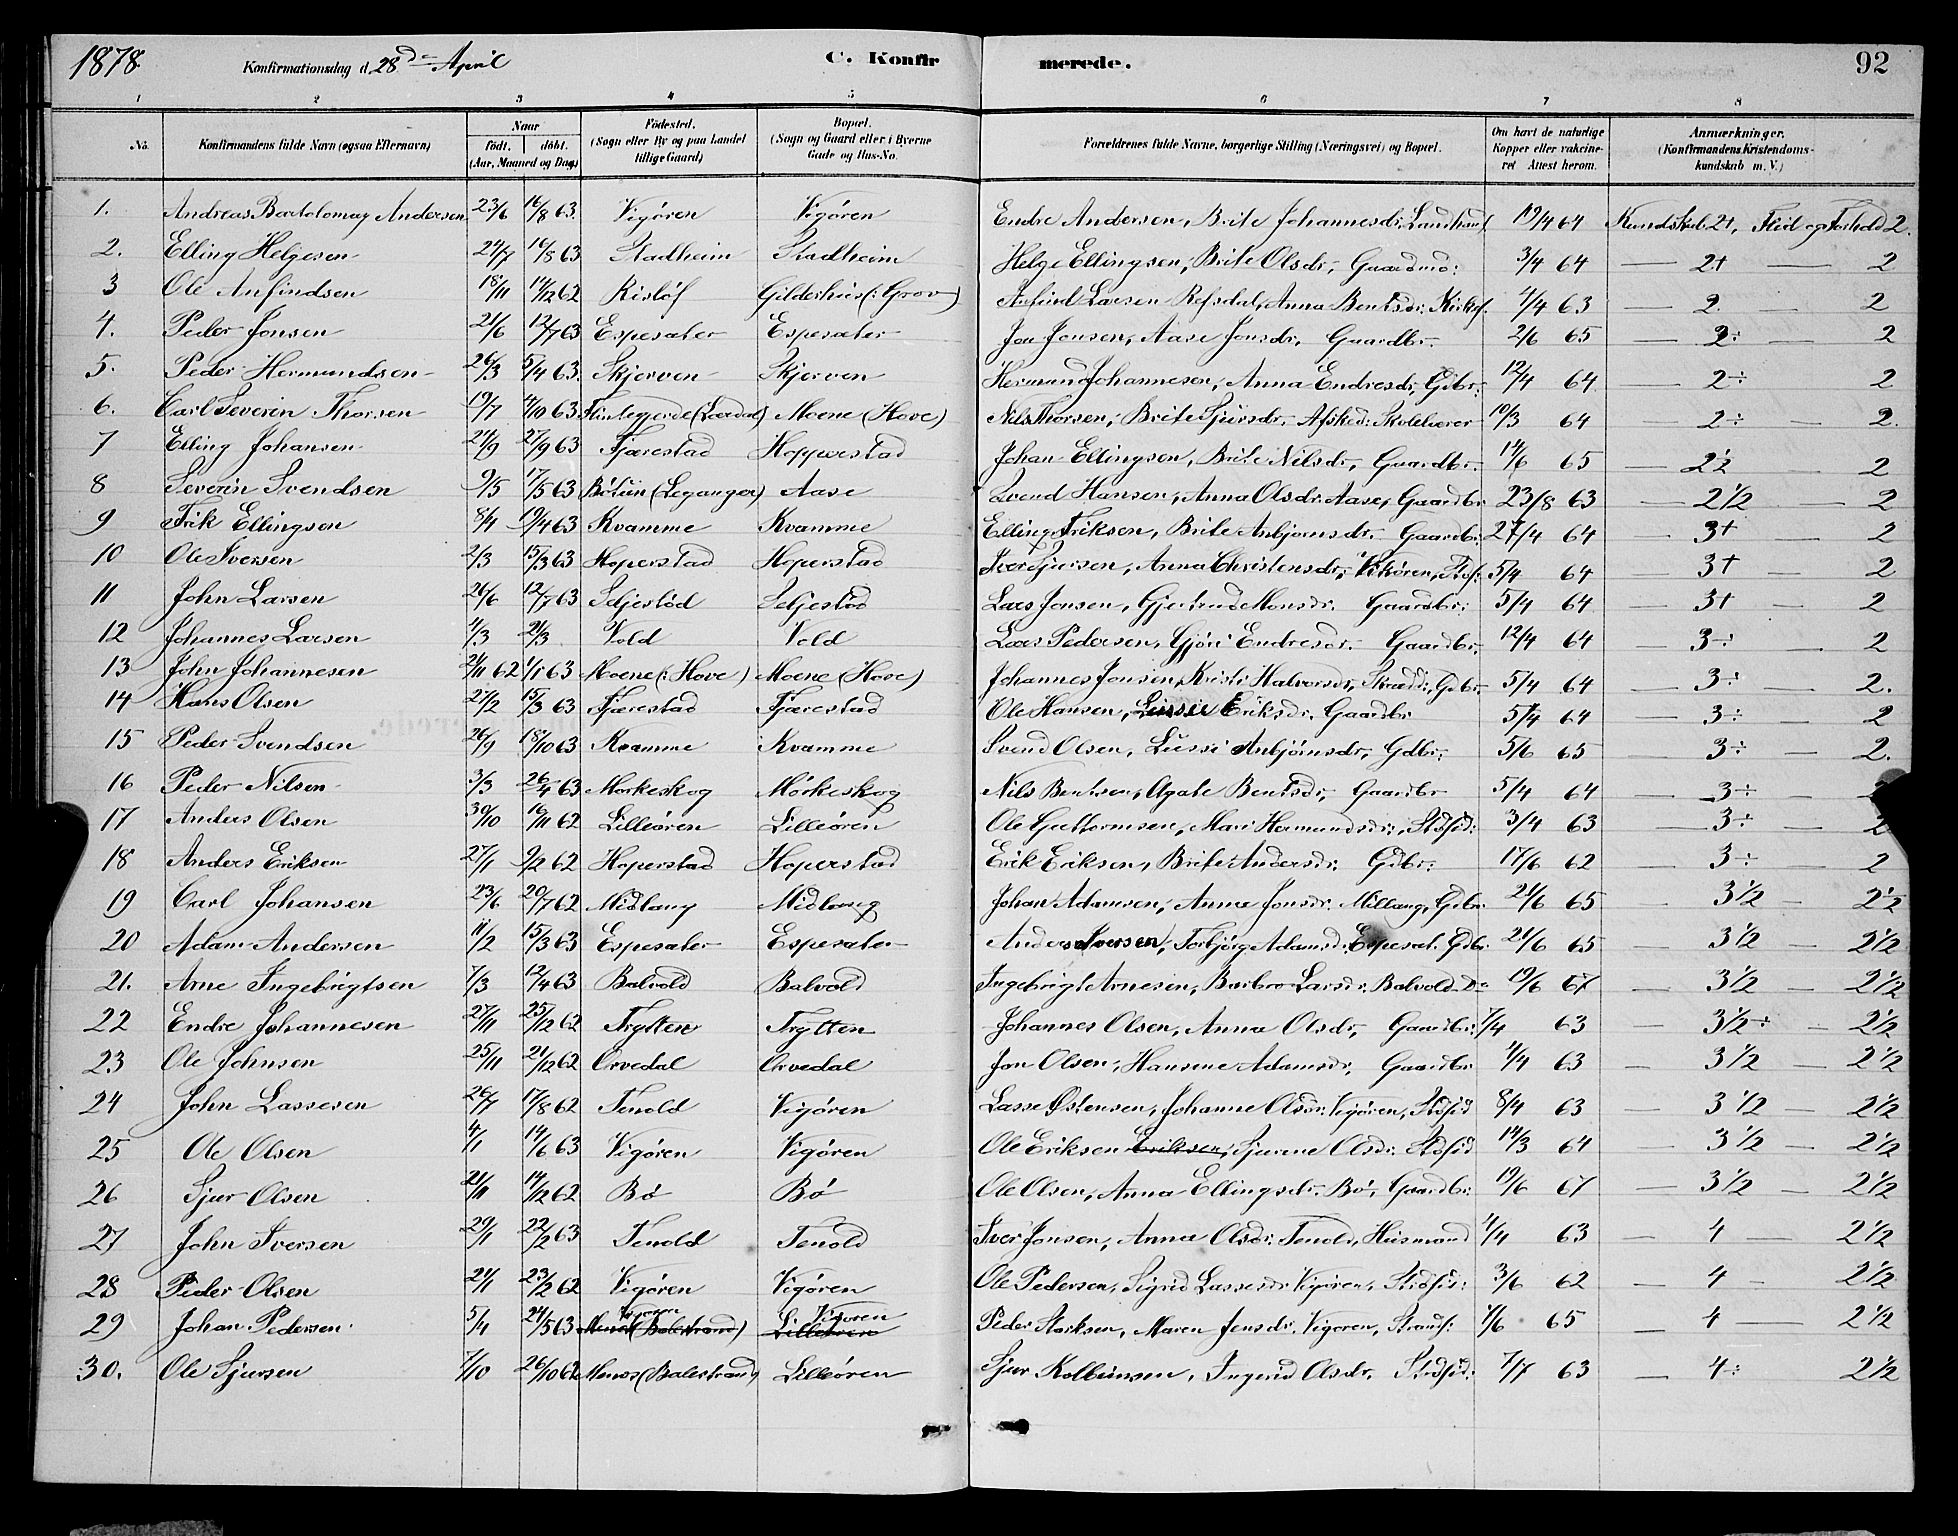 1878. Konfirmationsdag d. 28de April C. Konfirmerede. 92
1 2 3 4 5 6 7 8
No. Konfirmandens fulde Navn (ogsaa Efternavn) Naar født. døbt. (Aar, Maaned og Dag) Fødested. (Sogn eller By og paa Landet tillige Gaard) Bopæl. (Sogn og Gaard eller i Byerne Gade og Hus-No. Forældrenes fulde Navne, borgerlige Stilling (Næringsvei) og Bopæl. Om havt de naturlige Kopper eller vakcineret Attest herom. Anmærkninger. (Konfirmandens Kristendomskundskab m. V.)
1. Andreas Bartolomay Andersen 23/6 16/8 63. Vigøren Vigøren Endre Andersen, Brite Johannesdr. Landhand. 19/4 64 Kundskab 2+, Flid og Forhold 2.
2. Elling Helgesen 24/7 16/8 63 Stadheim Stadheim Helge Ellingsen, Brite Olsdr, Gaardmd: 3/4 64 — 2+ — 2
3 Ole Anfindsen 18/11 14/12 62 Risløf Gilderhus (: Grov) Anfind Larsen Refsdal, Anna Bentsdr. Kirkes. 4/4 63 — 2. — 2
4. Peder Jonsen 21/6 12/7 63 Espesæter Espesæter Jon Jonsen, Aase Jonsdr. Gaardbr. 2/6 65 — 2÷ — 2
5. Peder Hermundsen 26/3 5/4 63. Skjerven Skjerven Hermund Johannesen, Anna Endresdr, Gdbr. 12/4 64 — 2÷ 2
6. Carl Severin Thorsen 19/7 4/10 63. (Lærdal) Moene (Hove) Nils Thorsen, Brite Sjursdr. Afsked. Skolelærer 10/3 64 — 2÷ — 2.
7 Elling Johansen 24/9 27/9 63 Fjærestad Hopperstad Johan Ellingsen, Brite Nilsdr, Gaardbr. 14/6 65 — 2½ — 2
8 Severin Svendsen 9/5 17/5 63 Bøtun (Leganger) Aase Svend Hansen, Anna Olsdr. Aase, Gaardbr 23/8 63 — 2½ — 2
9 Erik Ellingsen 8/4 19/4 63 Kvamme Kvamme Elling Eriksen, Brite Anbjørnsdr. Gaardbr. 27/4 64 — 3+ — 2
10 Ole Iversen 2/3 15/3 63 Hoperstad Hoperstad Iver Sjursen, Anna Christensdr, Vikøren, Stdf: 5/4 64 — 3+ — 2
11 John Larsen 26/6 12/7 63 Seljestød Seljestød Lars Jonsen, Gjertrud Monsdr. Gaardbr: 5/4 64 — 3+ — 2
12 Johannes Larsen 4/3 21/3 Vold Vold Lars Pedersen, Gjøri Endresdr. Gaardbr. 12/4 64 — 3÷ — 2
13 John Johannesen 21/11 62 1/1 63 Moene (: Hove) Moene (Hove) Johannes Jonsen, Kristi Halvorsdr, Skrædd:, Gdbr. 5/4 64 — 3÷ — 2.
14 Hans Olsen 21/2 15/3 63 Fjærestad Fjærestad Ole Hansen, Lussie Eriksdr. Gaardbr 5/4 64 — 3÷ — 2
15 Peder Svendsen 26/9 18/10 63 Kvamme Kvamme Svend Olsen, Lussi Anbjørnsdr, Gdbr. 5/6 65 — 3÷ — 2.
16 Peder Nilsen 3/3 26/4 63 Mørkeskog Mørkeskog Nils Bentsen, Agate Bentsdr, Gaardbr 5/4 64 — 3÷
17 Anders Olsen 30/10 16/11 62 Lilleøren Lilleøren Ole Guttormsen, Mari Hermundsdr, Stdsid: 3/4 63 — 3÷ — 2
18 Anders Eriksen 27/1 9/2 62 Hoperstad Hoperstad Erik Eriksen, Brite Andersdr. Gdbr: 17/6 62 — 3÷ — 2
19 Carl Johansen 23/6 20/7 62 Midlang Midlang Johan Adamsen, Anna Jonsdr. Millang, Gdbr. 21/6 65 — 3½ — 2½
20 Adam Andersen 11/2 15/3 63 Espesæter Espesæter Anders Iversen, Torbjørg Adamsdr. Espesæt. Gdbr. 21/6 65 — 3½ — 2½
21. Arne Ingebrigtsen 7/3 12/4 63 Balvold Balvold Ingebrigt Arnesen, Barbro Larsdr. Balvold Do 19/6 67 — 3½ — 2½
22 Endre Johannesen 27/11 25/12 62 Trytten Trytten Johannes Olsen, Anna Olsdr, Gaardbr: 7/4 63 — 3½÷ — 2½
23 Ole Johnsen 25/11 21/12 62 Orvedal Orvedal Jon Olsen, Hansine Adamsdr, Gaardbr 4/4 63 — 3½ — 2½
24 John Lassesen 26/7 17/8 62 Tenold Vigøren Lasse Østensen, Johanne Olsdr. Vigøren, Stdsid 8/4 63 — 3½ — 2½
25 Ole Olsen 4/1 14/6 63 Vigøren Vigøren Ole Eriksen Eriksen, Sjurine Olsdr. Stdsid 14/3 64 — 3½ — 2½
26 Sjur Olsen 21/11 14/12 62 Bø Bø Ole Olsen, Anna Ellingsdr. Bø, Gaardbr. 19/6 67 — 3½ — 2½
27 John Iversen 29/1 22/2 63 Tenold Tenold Iver Jonsen, Anna Olsdr. Tenold, Husmand 4/4 63 — 4 — 2½
28 Peder Olsen 21/1 23/2 62 Vigøren Vigøren Ole Pedersen, Sigrid Lassesdr Vigøren, Stdsid: 3/6 62 — 4 — 2½
29 Johan Pedersen 5/4 24/5 63 Vigøren Menes (Balestrand) Vigøren Lilleøren Peder Starksen, Maren Jensdr. Vigøren, Strands: 4/6 65 — 4 — 2½
30. Ole Sjursen 7/10 26/10 62 Menes (Balestrand) Lilleøren Sjur Kolbeinsen, Ingerid Olsdr. Stdsid: 7/7 63 — 4÷ 2½